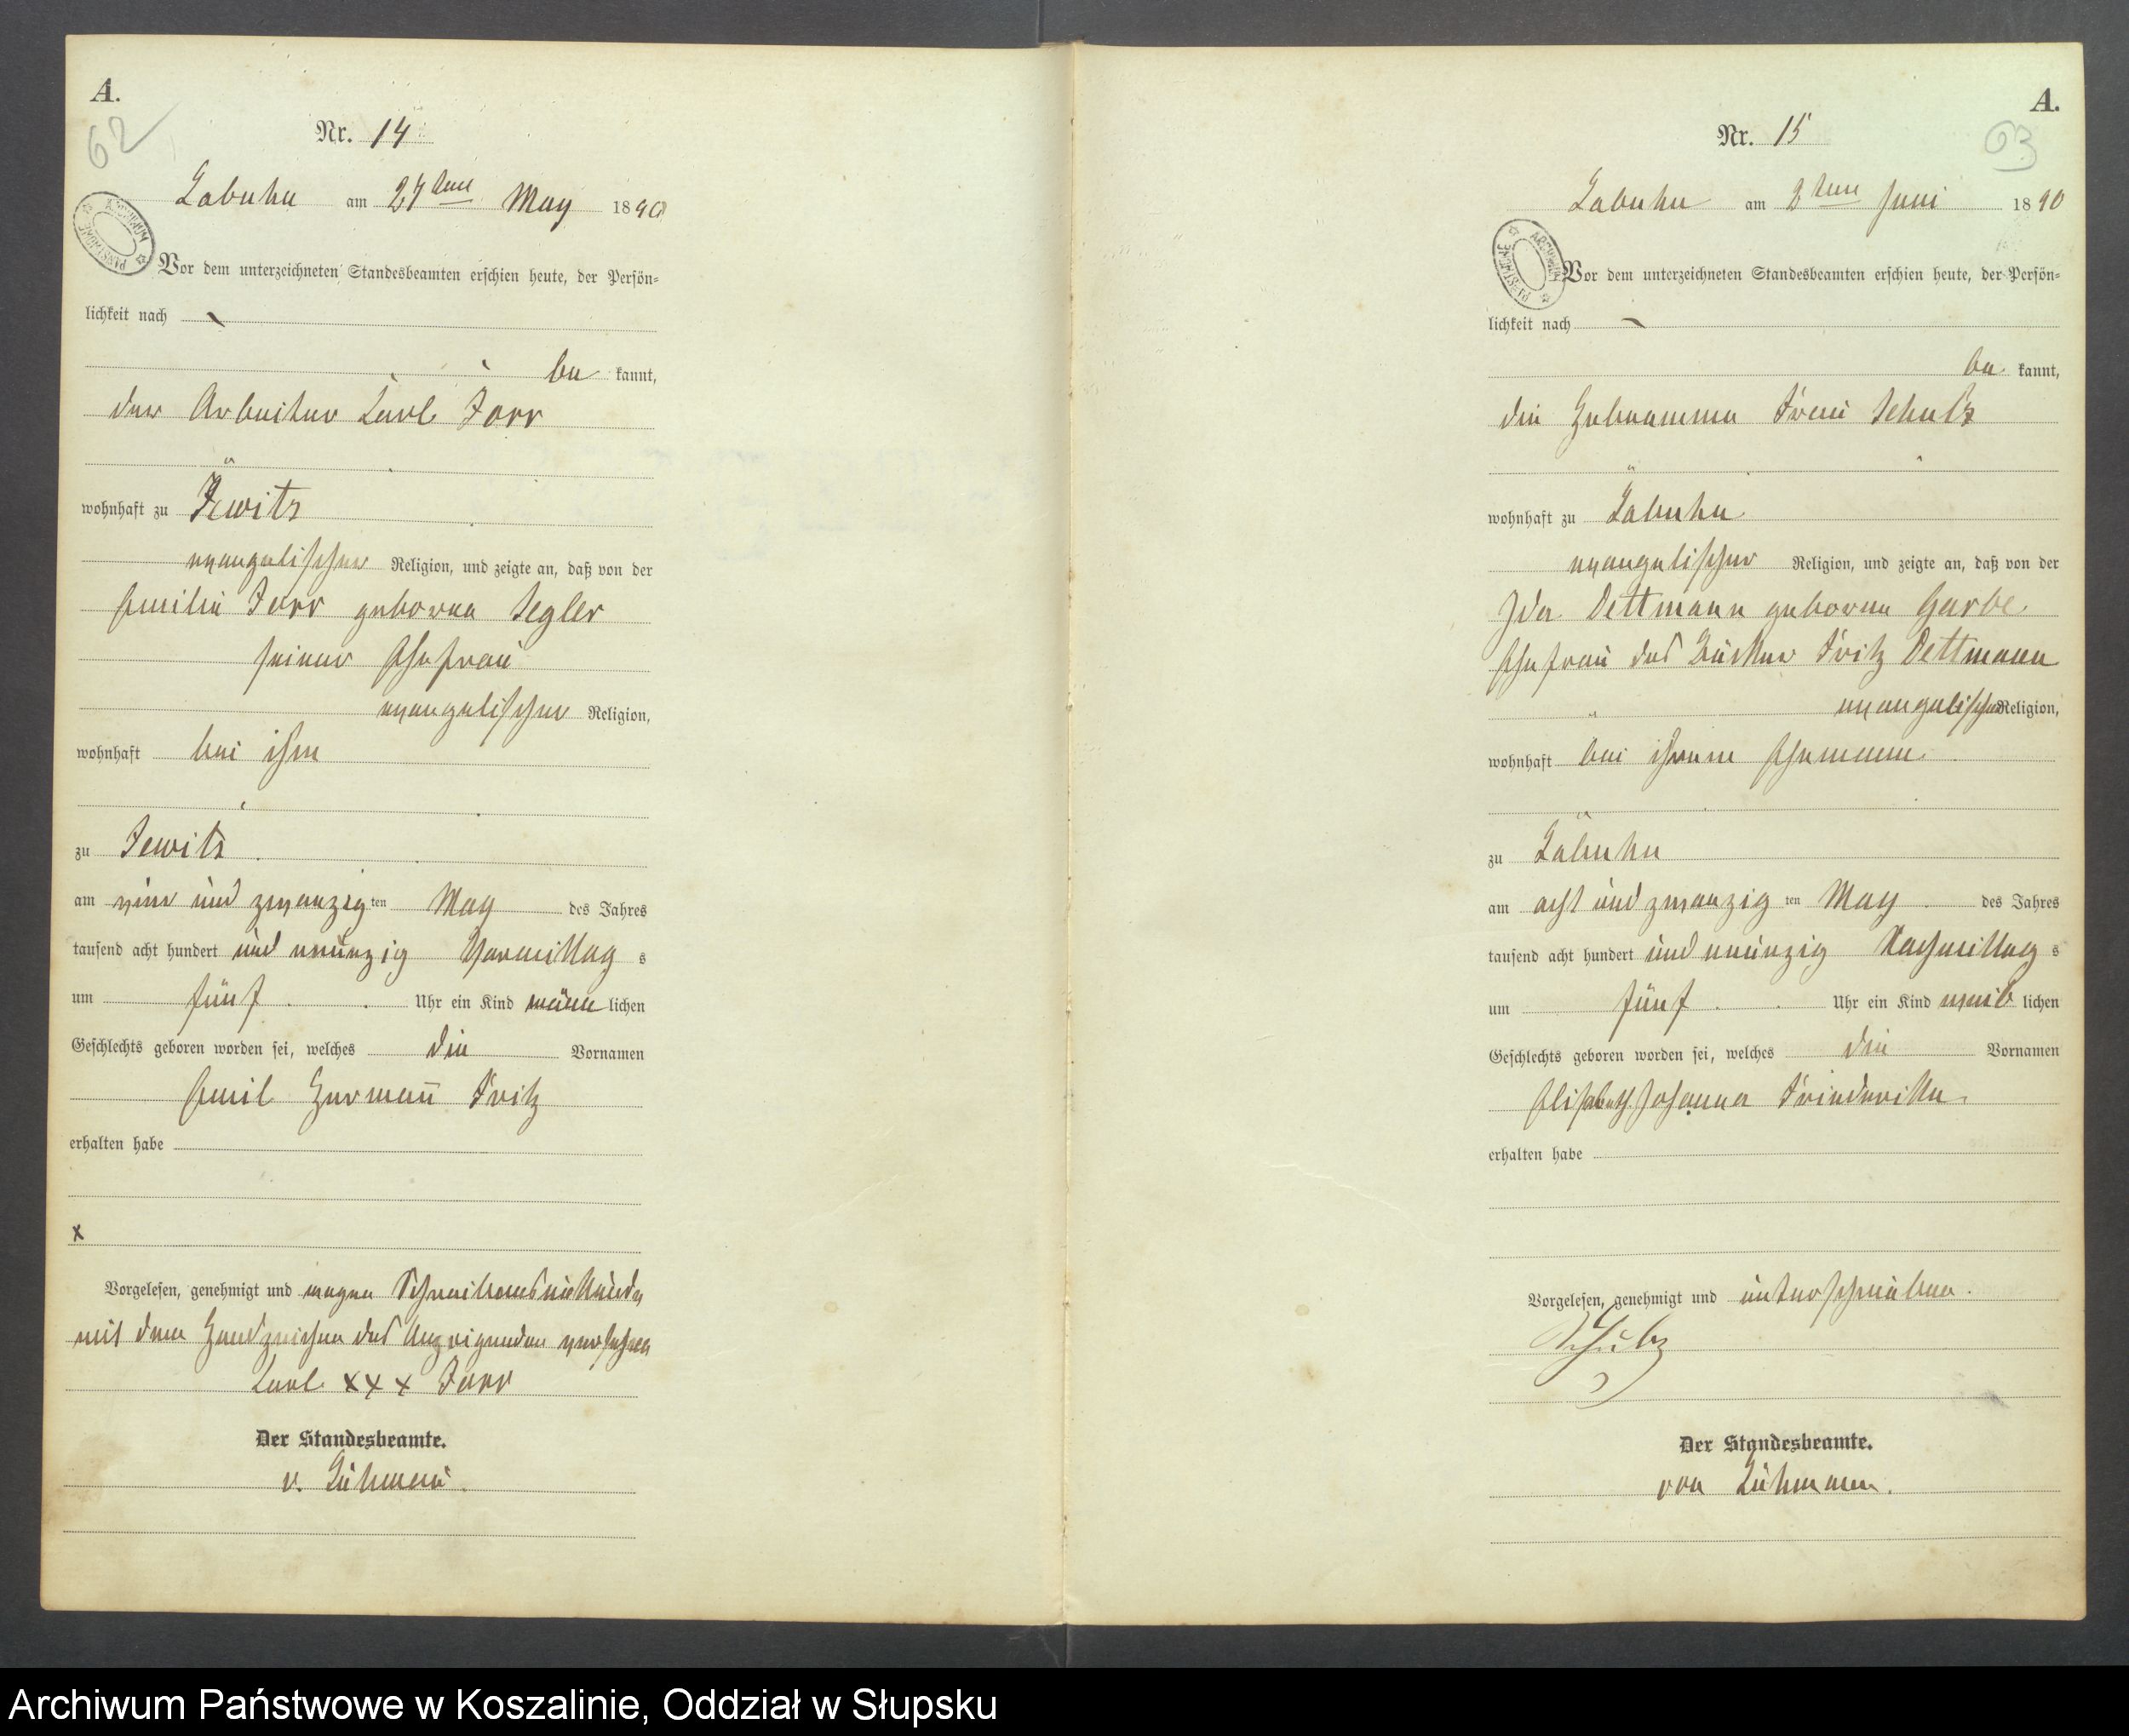 A.
62
Nr. 14
Labuhn am 27ten May 1890
Vor dem unterzeichneten Standesbeamten erschien heute, der Persön=
lichkeit nach
be kannt,
der Arbeiter Carl
wohnhaft zu Jewitz
evangelischer Religion, und zeigte an, daß von der
Emilie geborne Segler
seiner Ehefrau
evangelischer Religion,
wohnhaft bei ihm
zu Jewitz
am vier und zwanzig ten May des Jahres
tausend acht hundert und neunzig Vormittag s
um fünf Uhr ein Kind männ lichen
Geschlechts geboren worden sei, welches die Vornamen
Emil Hermann Fritz
erhalten habe
x
Vorgelesen, genehmigt und wegen Schreibensunkunde
mit dem Handzeichen des Anzeigenden versehen
Carl xxx
Der Standesbeamte.
v.
A.
63
Nr. 15
Labuhn am 2ten Juni 1890
ARCHIWUM PAŃSTWOWE
Vor dem unterzeichneten Standesbeamten erschien heute, der Persön=
lichkeit nach
be kannt,
die Hebeamme Frau Schulz
wohnhaft zu Labuhn
evangelischer Religion, und zeigte an, daß von der
Ida Dettmann geborne Garbe
Ehefrau des Fritz Dettmann
evangelischer Religion,
wohnhaft bei ihrem Ehemann
zu Labuhn
am acht und zwanzig ten May des Jahres
tausend acht hundert und neunzig Nachmittag s
um fünf Uhr ein Kind weib lichen
Geschlechts geboren worden sei, welches die Vornamen
Elisabeth Johanna Friederike
erhalten habe
Vorgelesen, genehmigt und unterschrieben.
Schulz
Der Standesbeamte.
von
Archiwum Państwowe w Koszalinie, Oddział w Słupsku